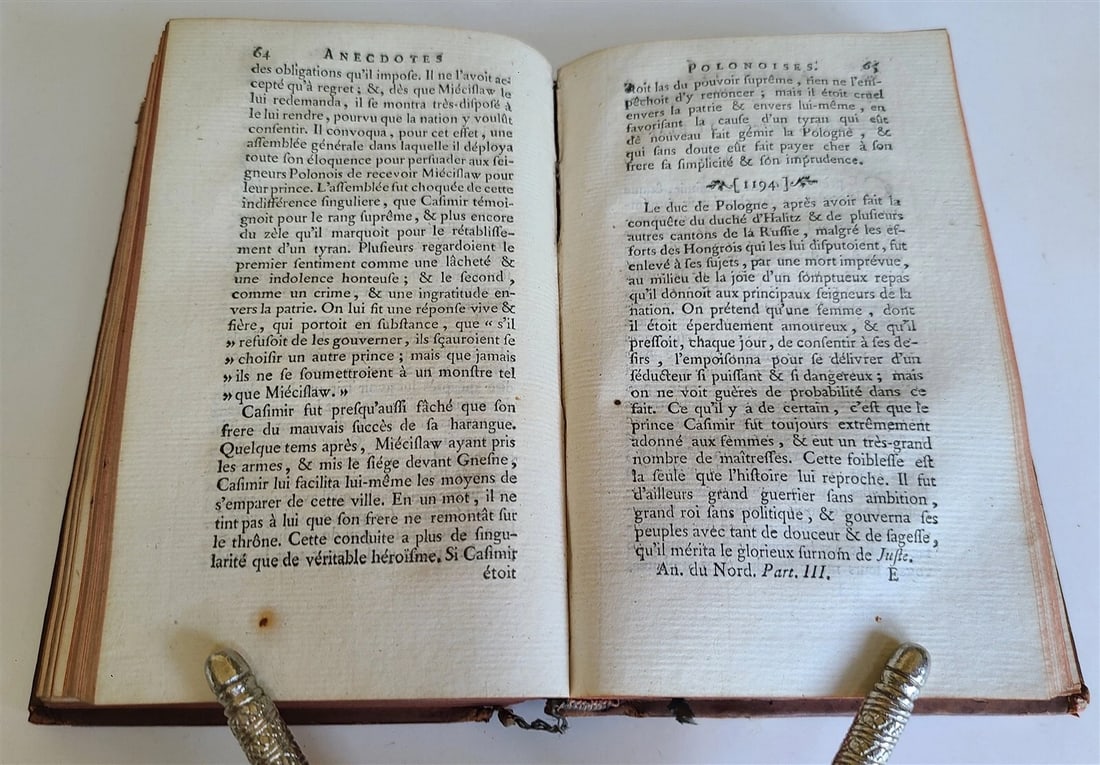 64 ANECDOTES
des obligations qu'il impose. Il ne l'avoit ac-
cepté qu'à regret ; &, dès que Miéciſlaw le
lui redemanda, il ſe montra très-diſpoſé à
le lui rendre, pourvu que la nation y voulût
conſentir. Il convoqua, pour cet effet, une
aſſemblée générale dans laquelle il déploya
toute ſon éloquence pour perſuader aux ſei-
gneurs Polonois de recevoir Miéciſlaw pour
leur prince. L'aſſemblée fut choquée de cette
indifférence ſinguliere, que Caſimir témoi-
gnoit pour le rang ſuprême, & plus encore
du zèle qu'il marquoit pour le rétabliſſe-
ment d'un tyran. Pluſieurs regardoient le
premier ſentiment comme une lâcheté &
une indolence honteuſe ; & le ſecond,
comme un crime, & une ingratitude en-
vers la patrie. On lui fit une réponſe vive &
fière, qui portoit en ſubſtance, que « s'il
» refuſoit de les gouverner, ils ſçauroient ſe
» choiſir un autre prince ; mais que jamais
» ils ne ſe ſoumettroient à un monſtre tel
» que Miéciſlaw. »
Caſimir fut preſqu'auſſi fâché que ſon
frere du mauvais ſuccès de ſa harangue.
Quelque tems après, Miéciſlaw ayant pris
les armes, & mis le ſiége devant Gneſne,
Caſimir lui facilita lui-même les moyens de
s'emparer de cette ville. En un mot, il ne
tint pas à lui que ſon frere ne remontât ſur
le thrône. Cette conduite a plus de ſingu-
larité que de véritable héroïſme. Si Caſimir
étoit
POLONOISES. 65
étoit las du pouvoir ſuprême, rien ne l'em-
pêchoit d'y renoncer ; mais il étoit cruel
envers la patrie & envers lui-même, en
favoriſant la cauſe d'un tyran qui eût
de nouveau fait gémir la Pologne, &
qui ſans doute eût fait payer cher à ſon
frere ſa ſimplicité & ſon imprudence.
[1194.]
Le duc de Pologne, après avoir fait la
conquête du duché d'Halitz & de pluſieurs
autres cantons de la Ruſſie, malgré les ef-
forts des Hongrois qui les lui diſputoient, fut
enlevé à ſes ſujets, par une mort imprévue,
au milieu de la joie d'un ſomptueux repas
qu'il donnoit aux principaux ſeigneurs de la
nation. On prétend qu'une femme, dont
il étoit éperduement amoureux, & qu'il
preſſoit, chaque jour, de conſentir à ſes de-
ſirs, l'empoiſonna pour ſe délivrer d'un
ſéducteur ſi puiſſant & ſi dangereux ; mais
on ne voit guères de probabilité dans ce
fait. Ce qu'il y a de certain, c'eſt que le
prince Caſimir fut toujours extrêmement
adonné aux femmes, & eut un très-grand
nombre de maîtreſſes. Cette foibleſſe eſt
la ſeule que l'hiſtoire lui reproche. Il fut
d'ailleurs grand guerrier ſans ambition,
grand roi ſans politique, & gouverna ſes
peuples avec tant de douceur & de ſageſſe,
qu'il mérita le glorieux ſurnom de Juſte.
An. du Nord. Part. III. E